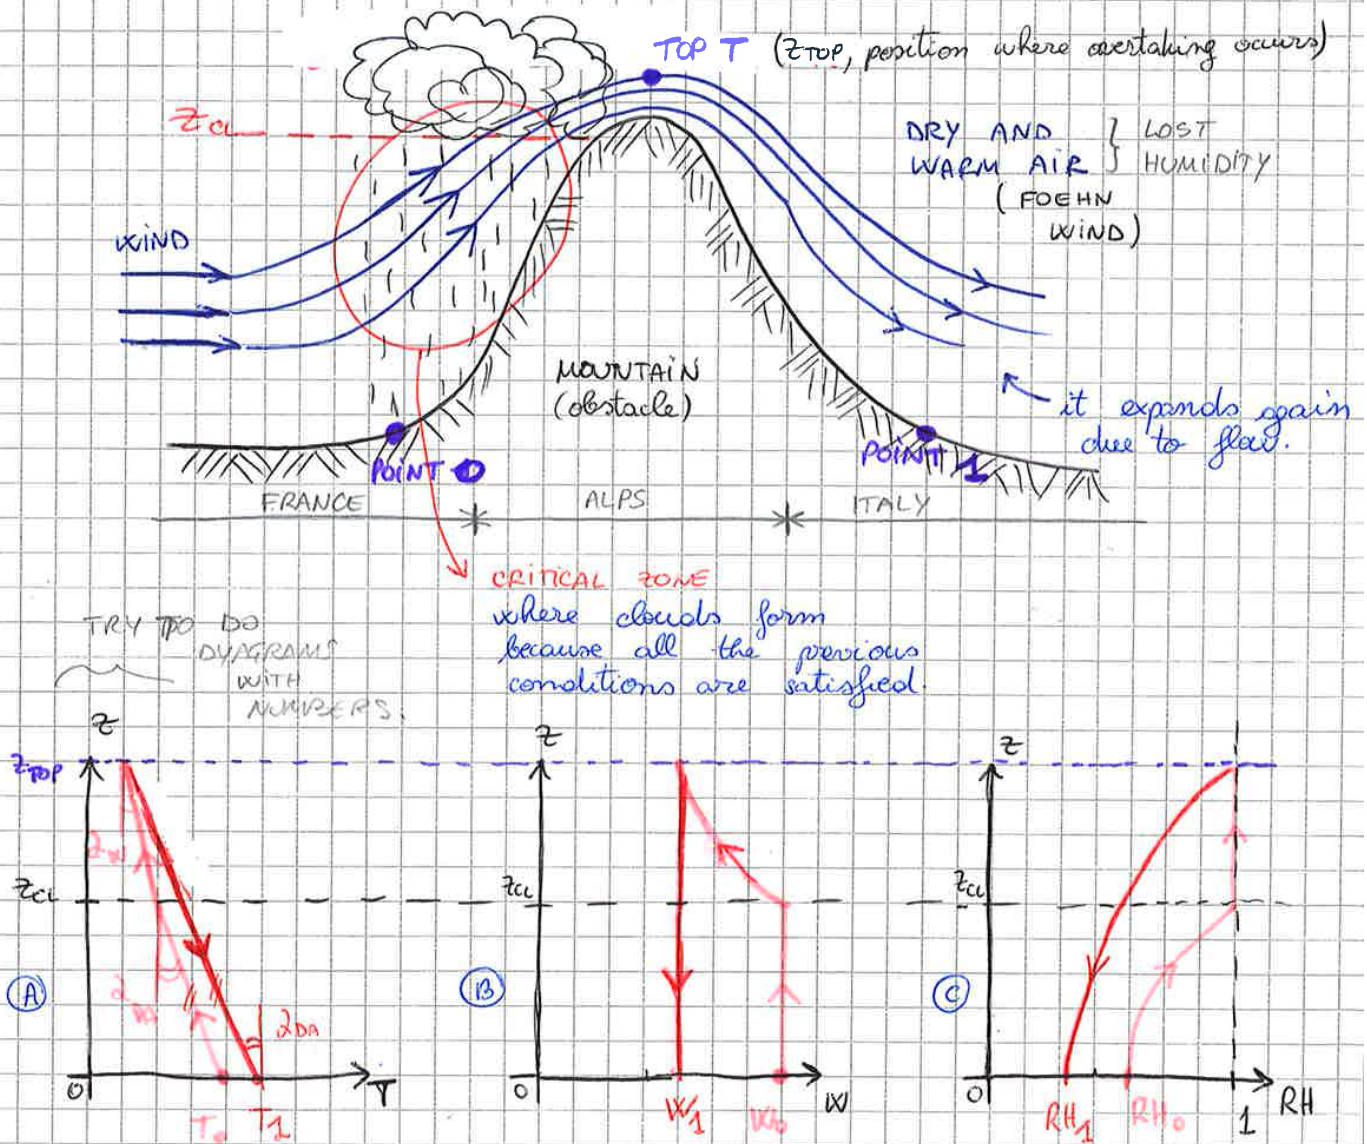 TOP T (ZTOP, position where overtaking occurs)
ZCL
DRY AND
WARM AIR } LOST
HUMIDITY
(FOEHN
WIND)
WIND
MOUNTAIN
(obstacle)
it expands again
due to flow.
POINT 0
POINT 1
FRANCE
ALPS
ITALY
CRITICAL ZONE
where clouds form
because all the previous
conditions are satisfied.
TRY TO DO
DYAGRAMS
WITH
NUMBERS.
Z
ZTOP
ZCL
A
λDA
0
T
T0
T1
Z
ZCL
B
0
W1
W0
W
Z
ZCL
C
0
RH1
RH0
1
RH